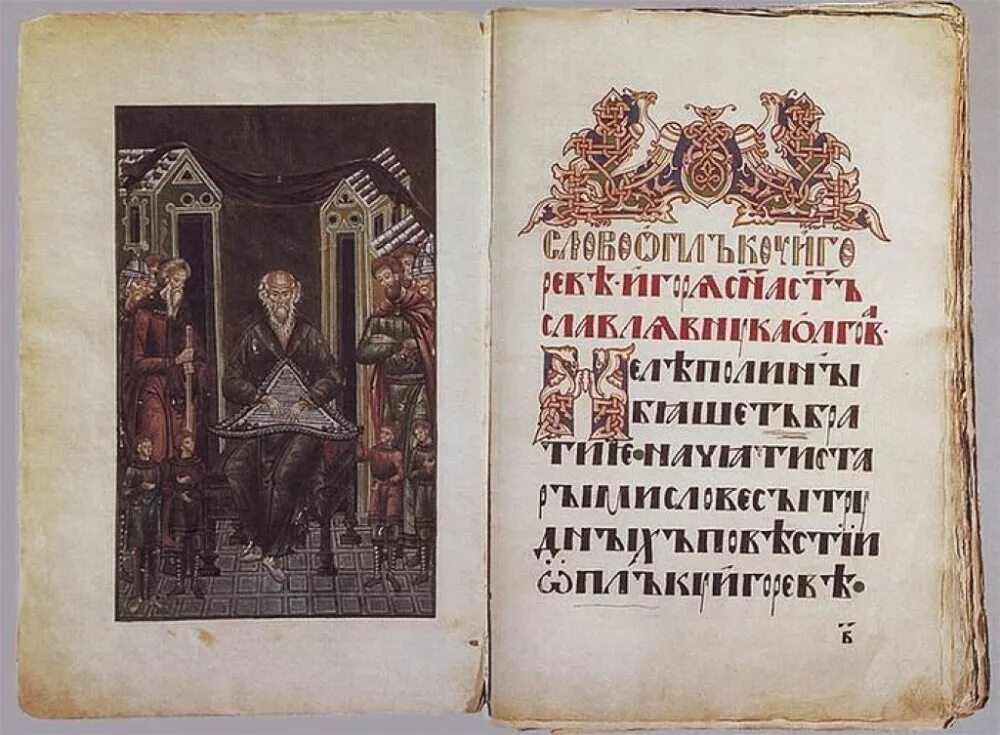 СЛОВОѠПЛЪКОУИГО
РЕВѢ·ИГОРѦСН҃АСТЪ
СЛАВЛѦВНꙊКАОЛГОВА·
НЕЛѢПОЛИНЫ
БꙖШЕТЪБРА
ТИѤ·НАЧꙖТИСТА
РЫМИСЛОВЕСЫТРꙊ
ДНЫХЪПОВѢСТІИ
ѠПЛЪКꙊИГОРЕВѢ·
Б